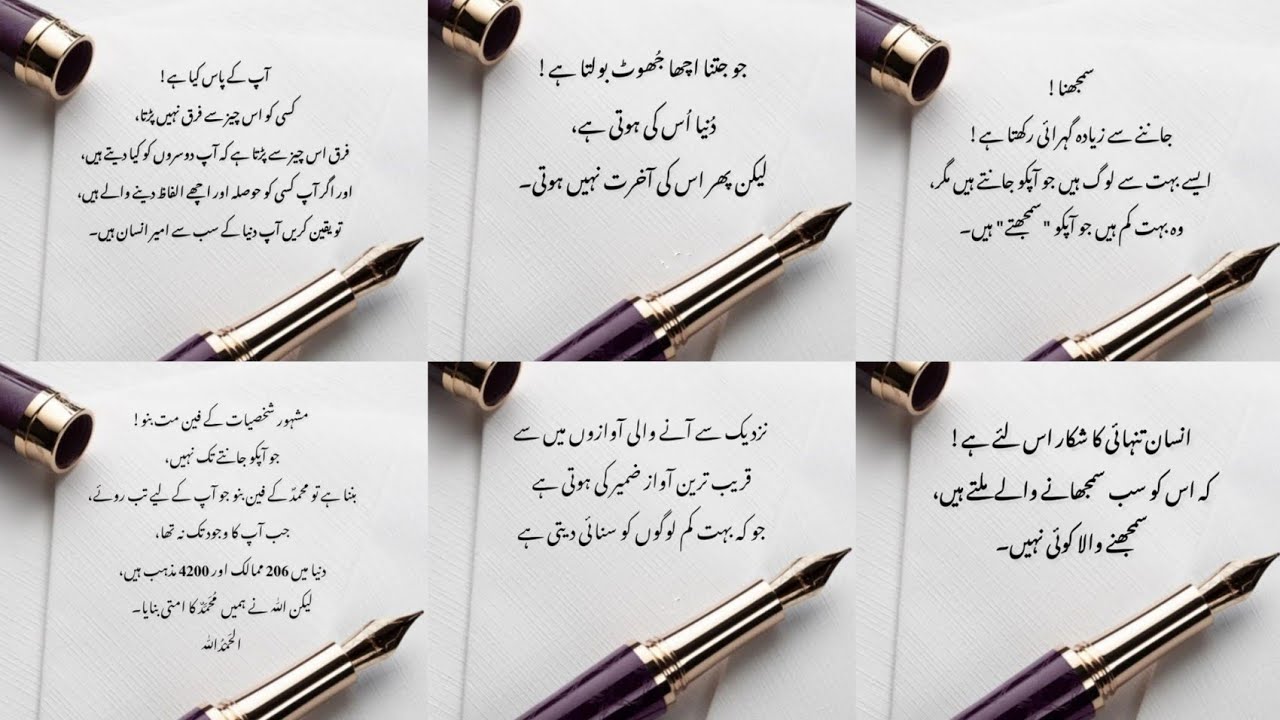 آپ کے پاس کیا ہے!
کسی کو اس چیز سے فرق نہیں پڑتا،
فرق اس چیز سے پڑتا ہے کہ آپ دوسروں کو کیا دیتے ہیں،
اور اگر آپ کسی کو حوصلہ اور اچھے الفاظ دینے والے ہیں،
تو یقین کریں آپ دنیا کے سب سے امیر انسان ہیں۔
جو جتنا اچھا جُھوٹ بولتا ہے!
دُنیا اُس کی ہوتی ہے،
لیکن پھر اس کی آخرت نہیں ہوتی۔
سمجھنا!
جاننے سے زیادہ گہرائی رکھتا ہے!
ایسے بہت سے لوگ ہیں جو آپکو جانتے ہیں مگر،
وہ بہت کم ہیں جو آپکو "سمجھتے" ہیں۔
مشہور شخصیات کے فین مت بنو!
جو آپکو جانتے تک نہیں،
بننا ہے تو محمدؐ کے فین بنو جو آپ کے لیے تب روئے،
جب آپ کا وجود تک نہ تھا،
دنیا میں 206 ممالک اور 4200 مذہب ہیں،
لیکن اللہ نے ہمیں مُحَمَّدؐ کا امتی بنایا۔
الحَمدُاللہ
نزدیک سے آنے والی آوازوں میں سے
قریب ترین آواز ضمیر کی ہوتی ہے
جو کہ بہت کم لوگوں کو سنائی دیتی ہے
انسان تنہائی کا شکار اس لئے ہے!
کہ اس کو سب سمجھانے والے ملتے ہیں،
سمجھنے والا کوئی نہیں۔